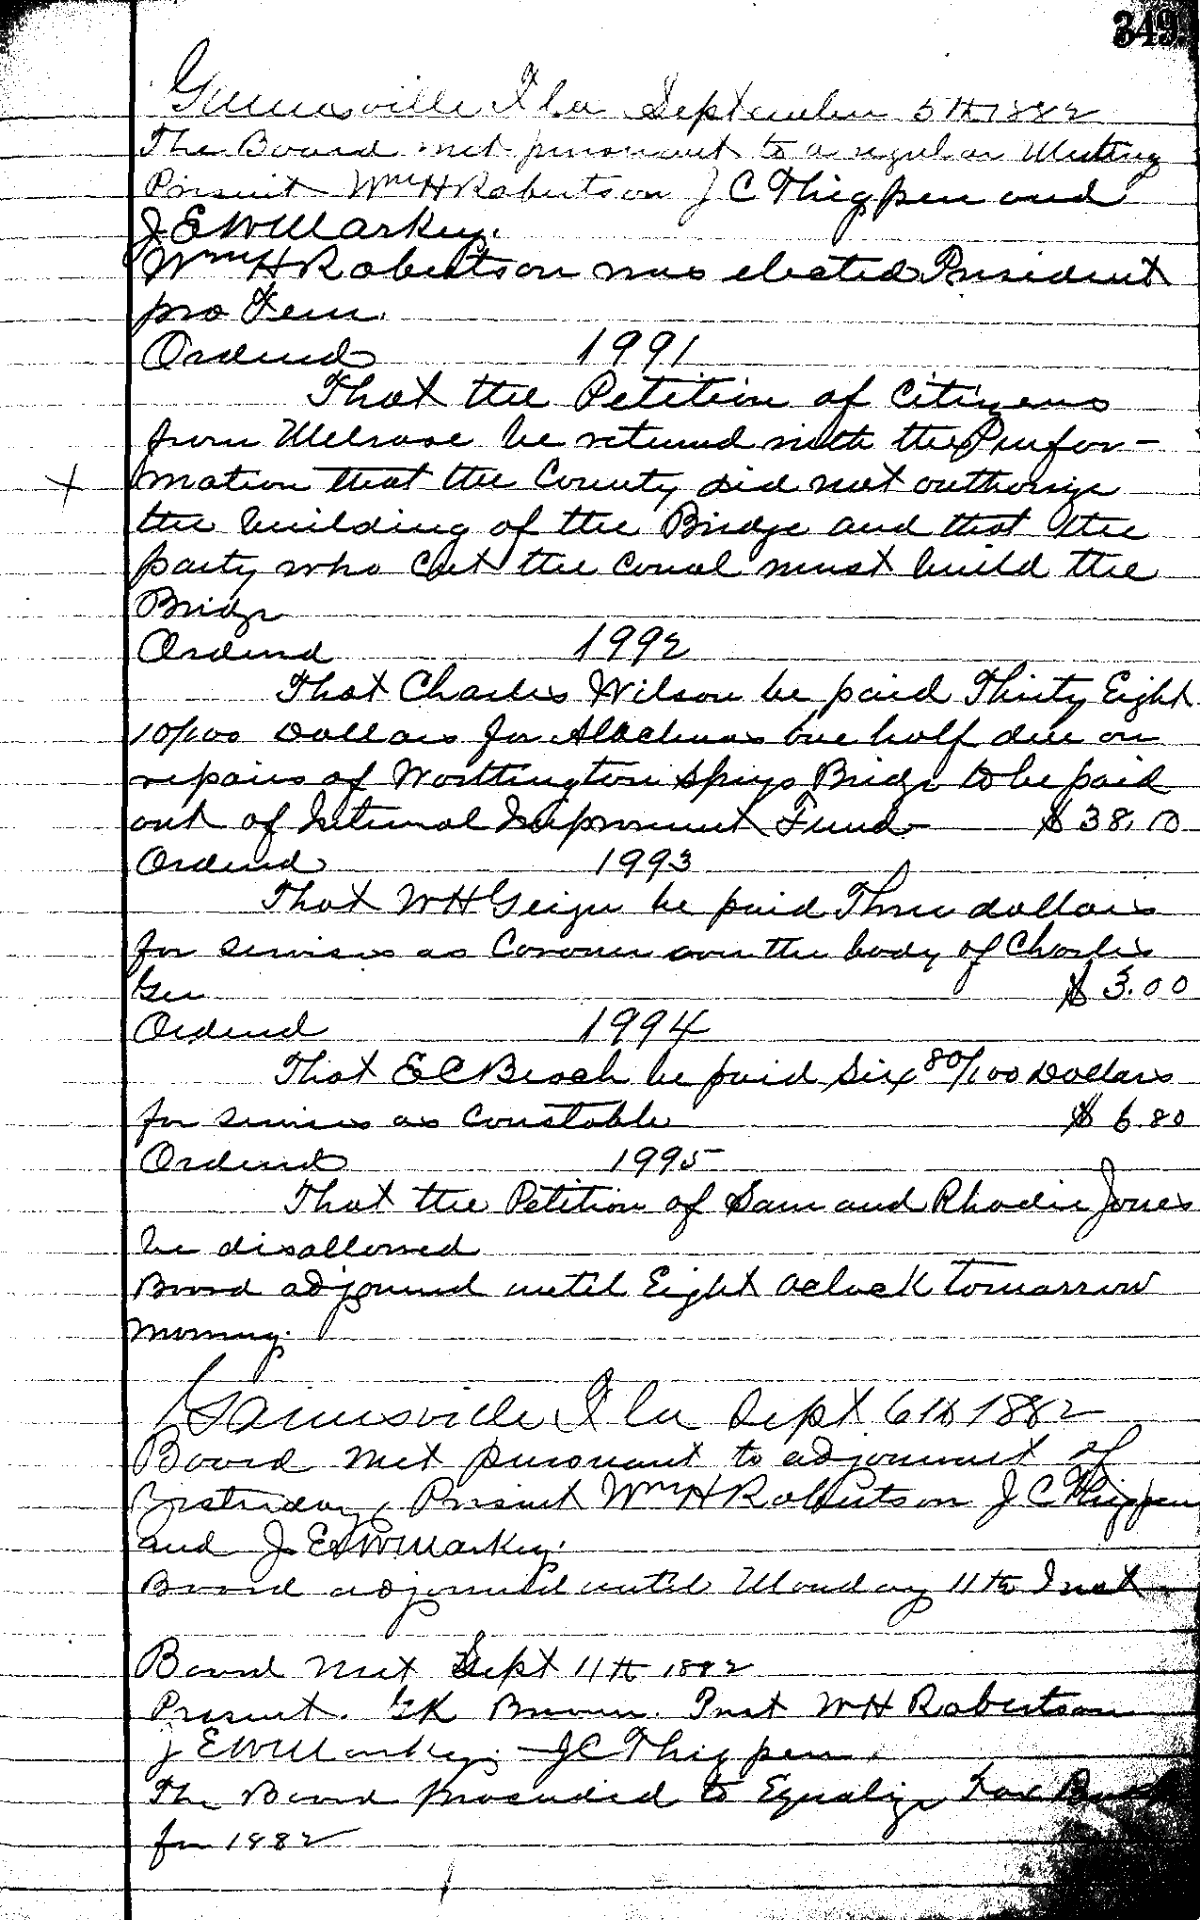 349
Gainesville Fla September 5th 1882
The Board met pursuant to a regular Meeting
Present Wm H Robertson J C Thigpen and
J E W Markey.
Wm H Robertson was elected President
pro tem.
Ordered 1991
That the Petition of Citizens
from Melrose be returned with the Infor-
mation that the County did not authorize
the building of the Bridge and that the
party who cut the canal must build the
Bridge
Ordered 1992
That Charles Wilson be paid Thirty Eight
10/100 Dollars for Alachuas one half due on
repairs of Worthington Spings Bridge to be paid
out of Internal Improvement Fund $38.10
Ordered 1993
That W H Geiger be paid Three dollars
for services as Coroner over the body of Charles
Gee $3.00
Ordered 1994
That E C Beach be paid Six 80/100 Dollars
for services as Constable $6.80
Ordered 1995
That the Petition of Sam and Rhodie Jones
be disallowed
Board adjourned until Eight Oclock tomarrow
morning.
Gainesville Fla Sept 6th 1882
Board met pursuant to adjournment of
Yesterday, Present Wm H Robertson J C Thigpen
and J E W Markey.
Board adjourned until Monday 11th Inst
Board met Sept 11th 1882
Present. G K Broome. Prest W H Robertson
J E W Markey. J C Thigpen.
The Board proceeded to Equalize Tax Book
for 1882